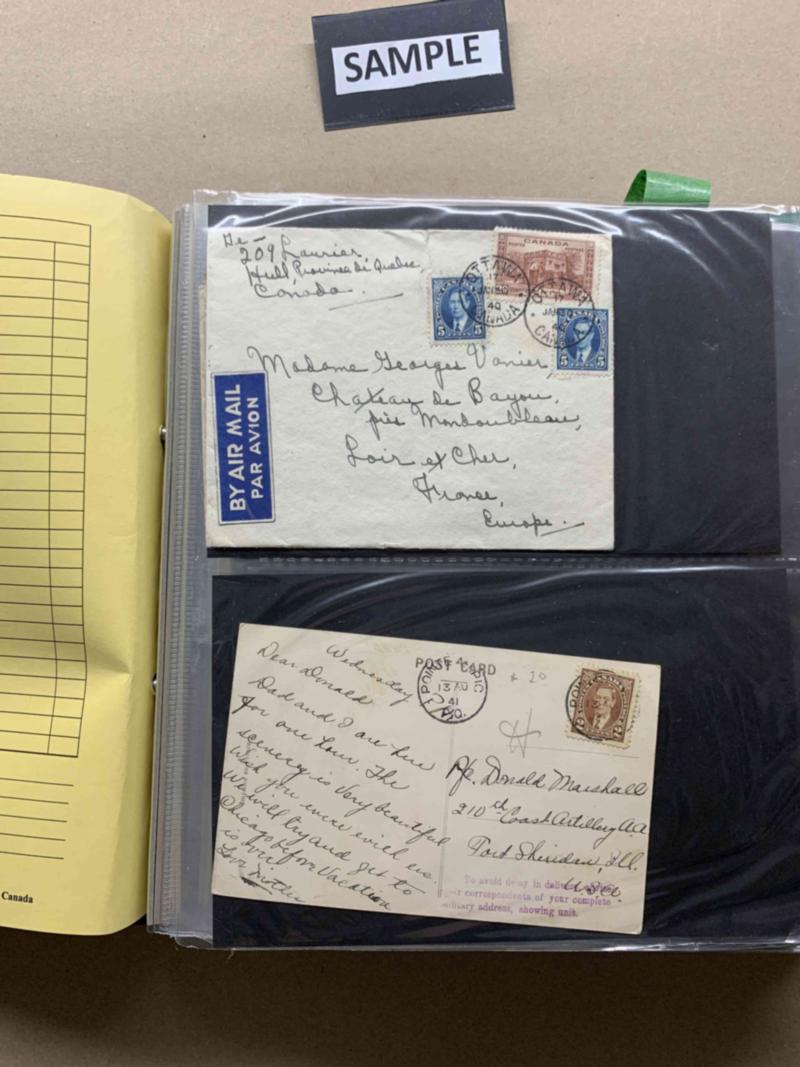 SAMPLE
209 Laurier
Hull Province de Quebec,
Canada.
CANADA
POSTES POSTAGE
OTTAWA
CANADA
40
OTTAWA
CANADA
5 5
5 5
Madame Georges Vanier,
Chateau de Bayou,
près Mondoubleau,
Loir et Cher,
France,
Europe.
BY AIR MAIL
PAR AVION
POST CARD
Wednesday
Dear Donald
Dad and I are here
for one hour. The
scenery is very beautiful
Wish you were with us.
We will try and get to
Chicago before Vacation
is over
Love Mother
13 AU
41
P.Q.
* 20
2 2
Donald Marshall
210th Coast Artillery A.A
Fort Sheridan, Ill.
U.S.A.
To avoid delay in
correspondents of your complete
military address, showing unit.
Canada